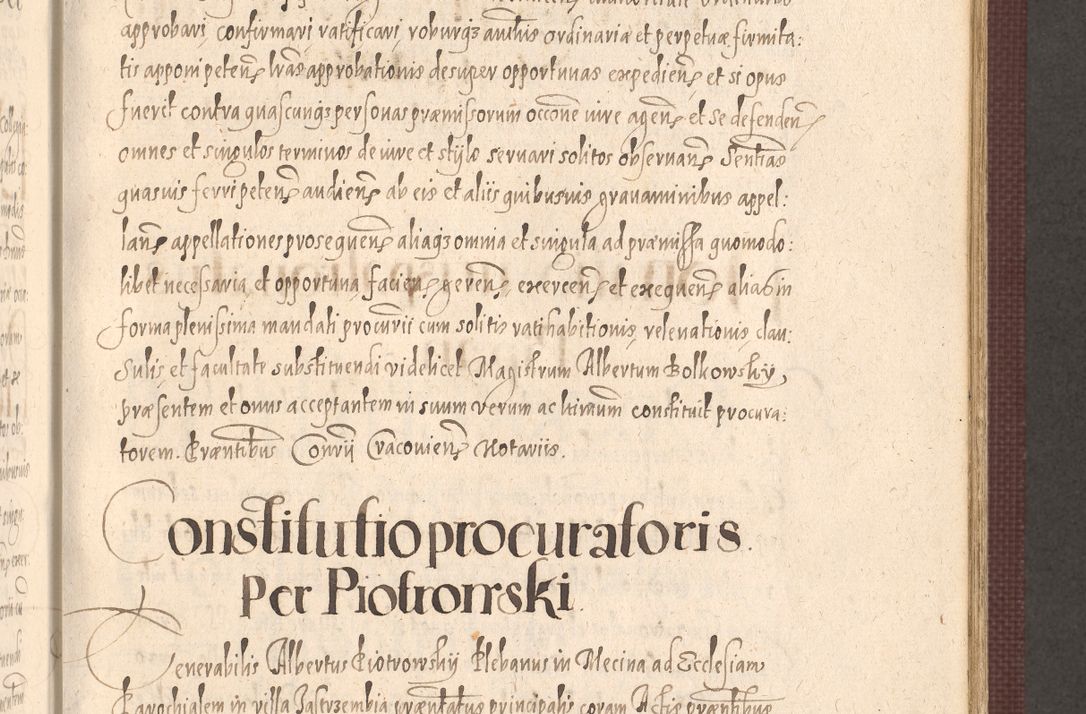 approbari, confirmari ratificari, roburq3 auth̄is ordinariæ et perpetuæ firmita:
tis apponi peten̄ lr̄as approbationis desuper opportunas expedien̄ et si opus
fuerit contra quascunq3 personas præmissorum occ̄one iure agen̄ et se defenden̄
omnes et singulos terminos de iure et stylo servari solitos observan̄ Sentīas
quasvis ferri peten̄ audien̄ ab eis et aliis quibusvis gravaminibus appel:
lan̄ appellationes prosequen̄ aliaq3 omnia et singula ad præmissa quomodo:
libet necessaria, et opportuna, facien̄ geren̄ exercen̄ et exequen̄ alias in
forma plenissima mandati procur̄ii cum solitis ratihabitionis, relevationis, clau:
sulis, et facultate substituendi videlicet Magistrum Albertum Bolkowsky,
præsentem et onus acceptantem in suum verum ac ltimum constituit procura:
torem. Præntibus Con̄rii Cracovien̄ Notariis.
Constitutio procuratoris
Per Piotrowski.
Venerabilis Albertus Piotrowskij Plebanus in Mecina ad Ecclesiam
Parochialem in villa Jastrzembia præntatus principalis coram Actis præntibus